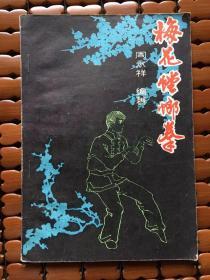 梅花螳螂拳
周永祥 编著